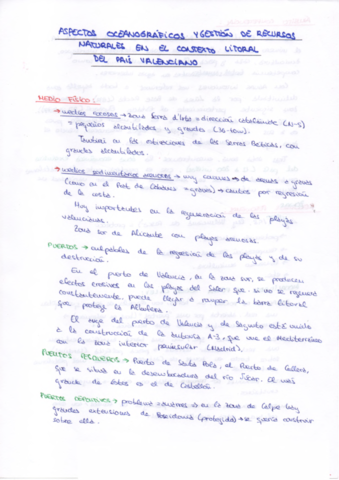 ASPECTOS OCEANOGRÁFICOS Y GESTIÓN DE RECURSOS
NATURALES EN EL CONTEXTO LITORAL
DEL PAÍS VALENCIANO
MEDIO FÍSICO:
→ medios rocosos → zona dirección (N-S)
→ pequeños acantilados y grandes
en las estribaciones de las sierras béticas, con
grandes acantilados.
→ medios sedimentarios arenosos → muy → de arenas → gravas
(como en el → gravas) → por regresión
de la costa.
Muy importantes en la regeneración de las playas
valencianas.
Zona sur de Alicante con playas arenosas.
PUERTOS → culpables de la regresión de las playas y de su
destrucción.
En el puerto de Valencia, en la zona sur, se producen
efectos erosivos en las playas del Saler que, si no se regenera
constantemente, puede llegar a romper la barra litoral
que protege la Albufera.
El auge del puerto de Valencia y de Sagunto está unido
a la construcción de la autovía A-3, que une el Mediterráneo
con la zona interior peninsular (Madrid).
PUERTOS PESQUEROS → Puerto de Santa Pola, el Puerto de Cullera,
que se sitúa en la desembocadura del río Júcar. El más
grande de éstos es el de Castellón.
PUERTOS DEPORTIVOS → problema → en la zona de Calpe hay
grandes extensiones de Posidonia (protegida) → se quería construir
sobre ella.